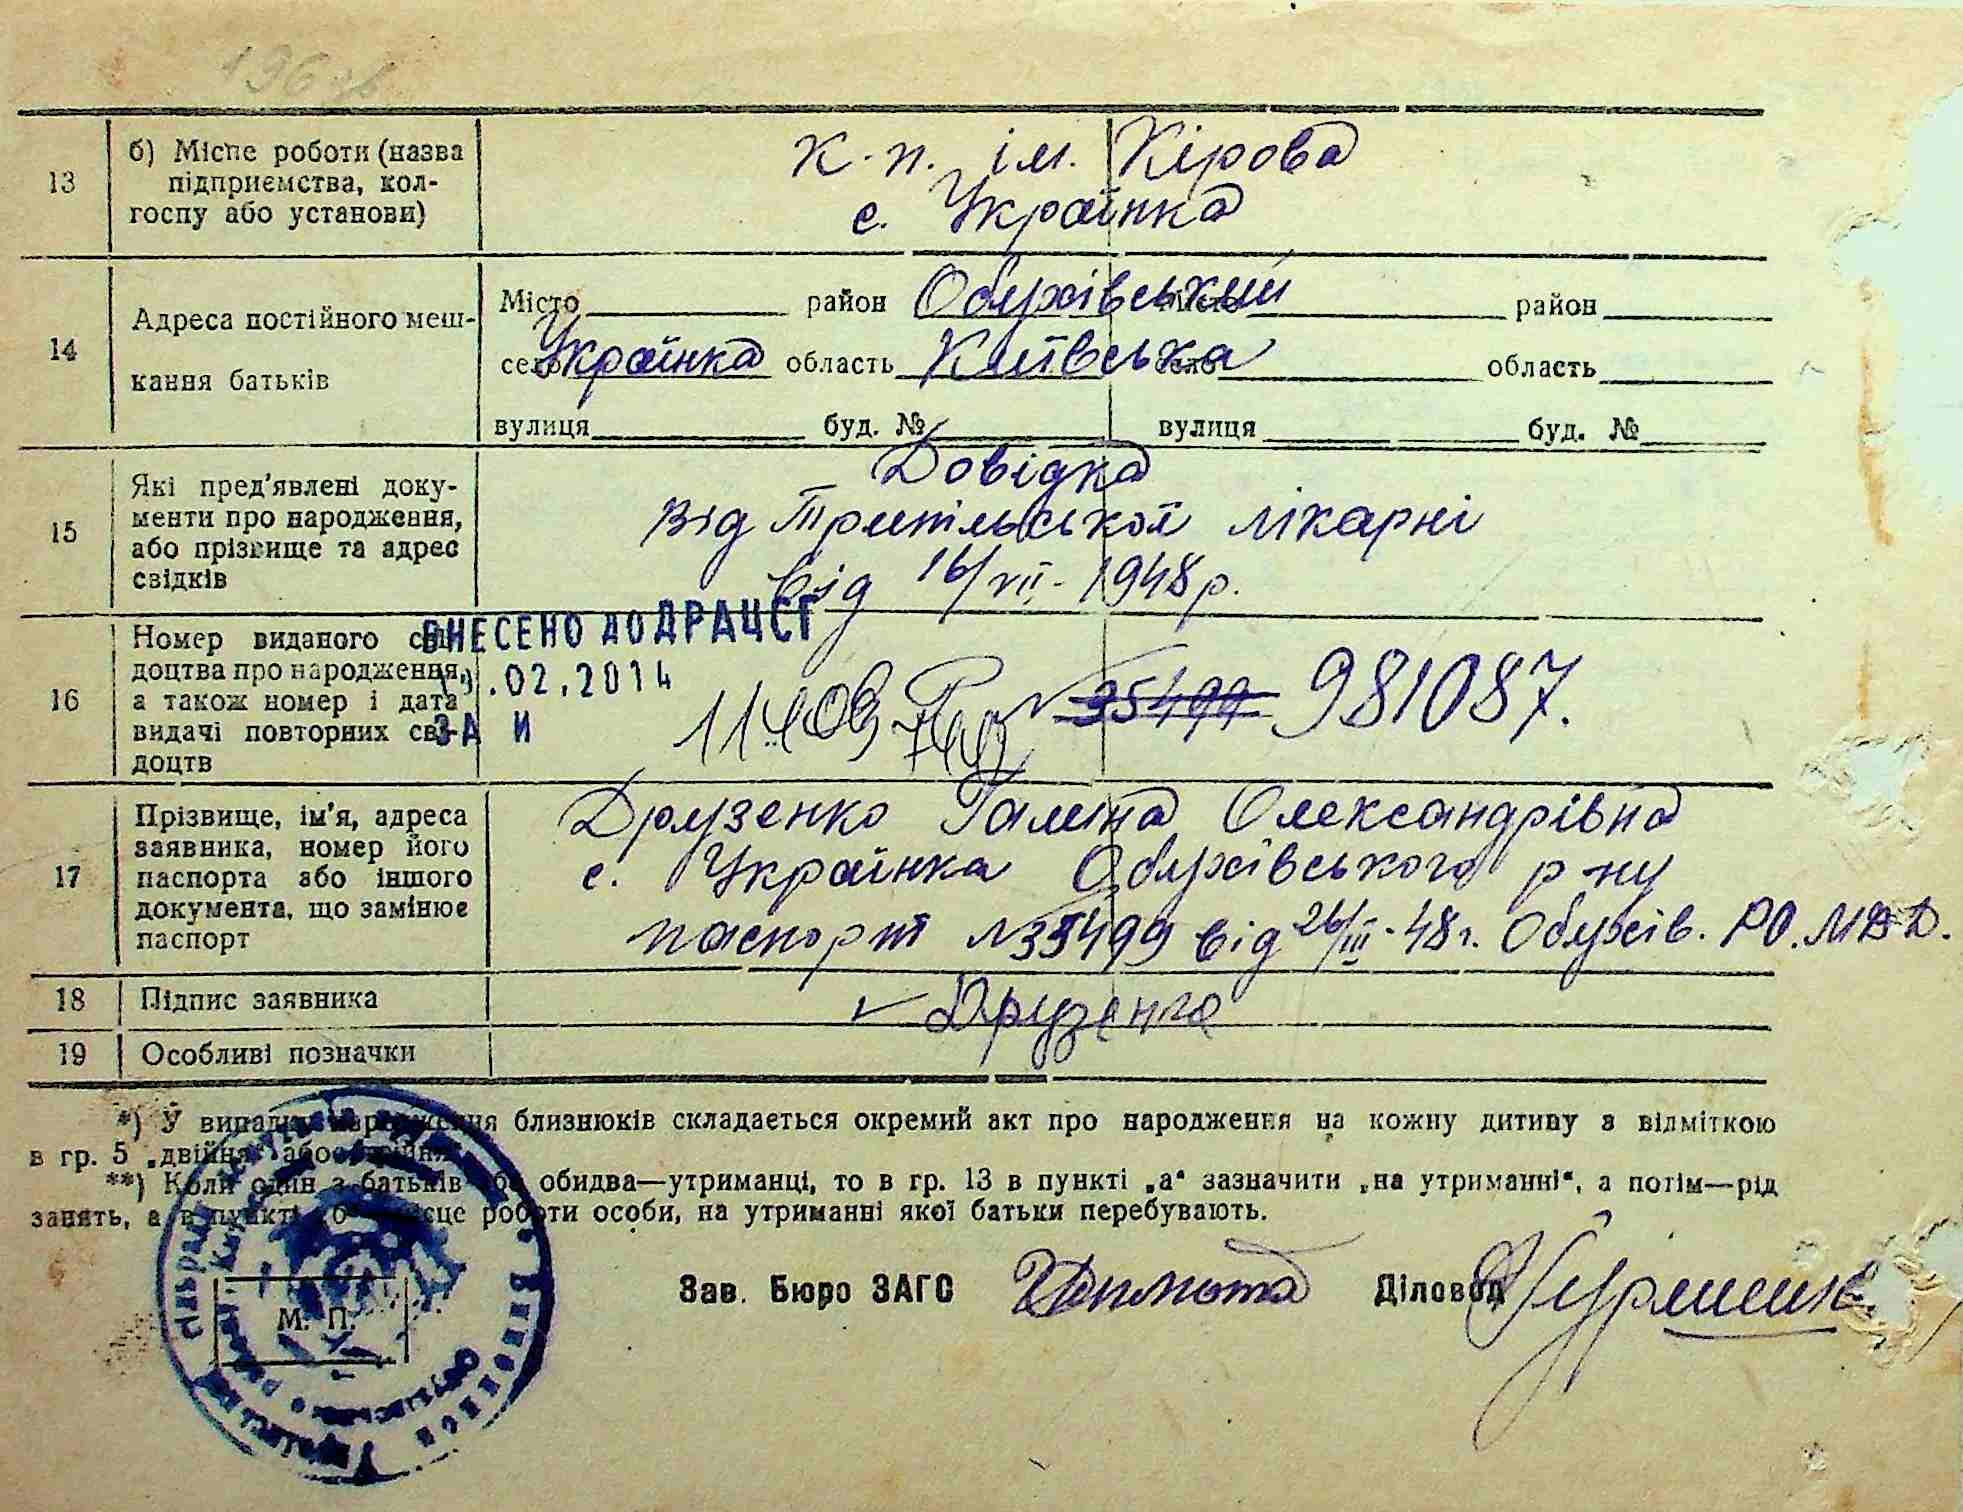 13
б) Місце роботи (назва
підприємства, кол-
госпу або установи)
к-п. ім. Кірова
с. Українка
14
Адреса постійного меш-
кання батьків
Місто район Обухівський місто район
село Українка область Київська село область
вулиця буд. № вулиця буд. №
15
Які пред'явлені доку-
менти про народження,
або прізвище та адрес
свідків
Довідка
від Трипільської лікарні
від 16/VII-1948р.
16
Номер виданого сві-
доцтва про народження,
а також номер і дата
видачі повторних сві-
доцтв
ВНЕСЕНО ДО ДРАЦСГ
.02.2014
ЗА И
35499 981087.
17
Прізвище, ім'я, адреса
заявника, номер його
паспорта або іншого
документа, що замінює
паспорт
Друзенко Галина Олександрівна
с. Українка Обухівського р-ну
паспорт №35499 від 26/III-48г. Обухів. РО.МВД.
18
Підпис заявника
Друзенко
19
Особливі позначки
*) У випадку народження близнюків складається окремий акт про народження на кожну дитину з відміткою
в гр. 5 „двійня" або „трійня".
**) Коли один з батьків або обидва—утриманці, то в гр. 13 в пункті „а" зазначити „на утриманні", а потім—рід
занять, а в пункті „б" місце роботи особи, на утриманні якої батьки перебувають.
М. П.
Зав. Бюро ЗАГС Діловод